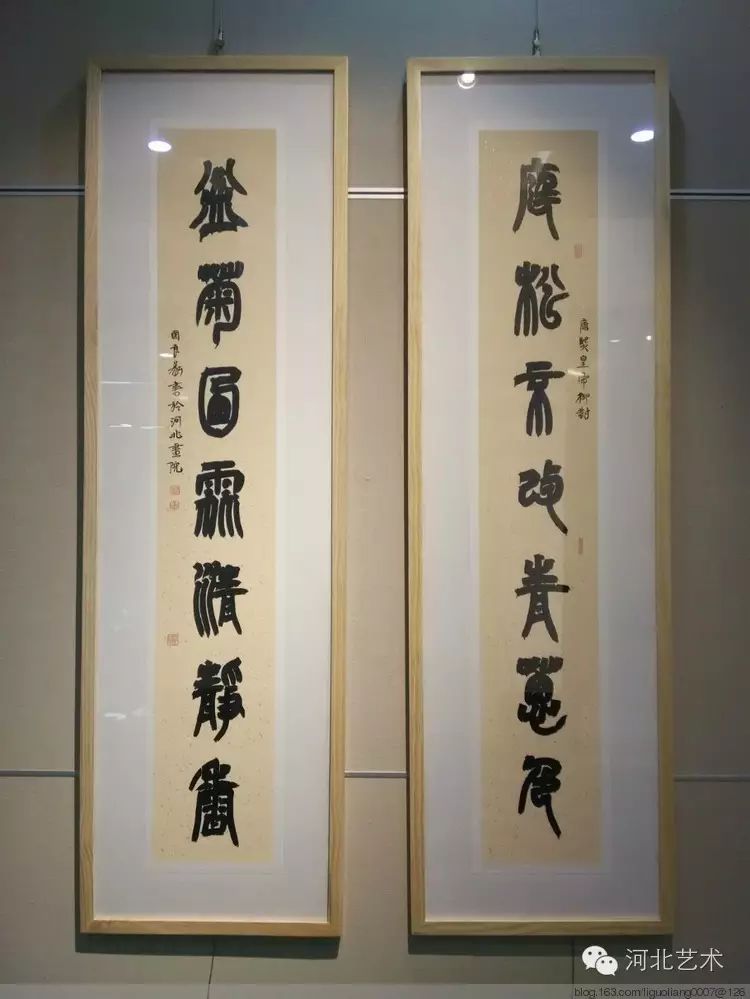 庭松不改青蔥色
康熙皇帝御對
盆菊霏清靜香
國良書於河北畫院
河北艺术
blog.163.com/liguoliang0007@126